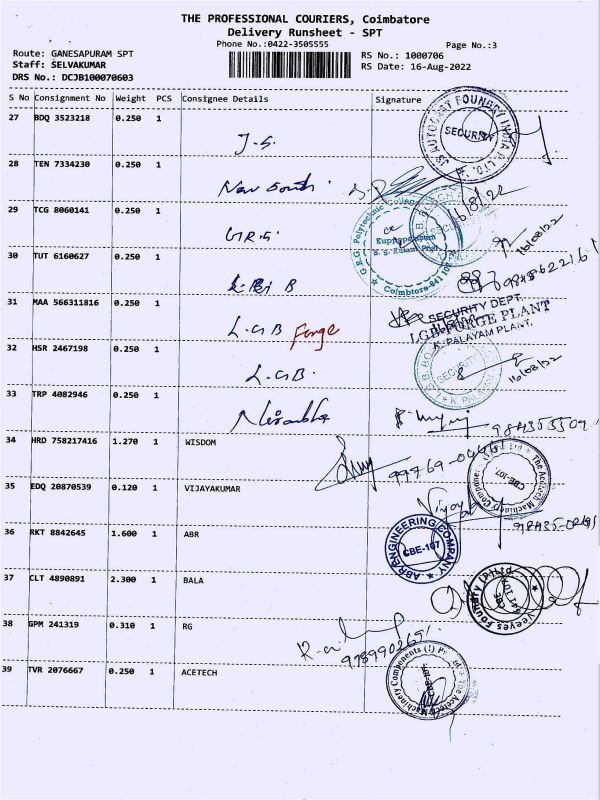 THE PROFESSIONAL COURIERS, Coimbatore
Delivery Runsheet - SPT
Phone No.:0422-3505555
Page No.:3
Route: GANESAPURAM SPT
Staff: SELVAKUMAR
DRS No.: DCJB100070603
RS No.: 1000706
RS Date: 16-Aug-2022
S No Consignment No Weight PCS Consignee Details Signature
27 BDQ 3523218 0.250 1 J.S.
SECURITY
28 TEN 7334230 0.250 1
16/8/22
29 TCG 8060141 0.250 1
G.R.G. Polytechnic College
Kuppepalayam
Coimbtore-641 107
16/08/22
30 TUT 6160627 0.250 1
31 MAA 566311816 0.250 1 L.G.B Forge
SECURITY DEPT.
LGB FORGE PLANT
K. PALAYAM PLANT.
32 HSR 2467198 0.250 1 L.G.B.
SECURITY
16/08/22
33 TRP 4082946 0.250 1
34 HRD 758217416 1.270 1 WISDOM
The Acetech Machinery Components
CBE-107
35 EDQ 20870539 0.120 1 VIJAYAKUMAR
36 RKT 8842645 1.600 1 ABR
ABR ENGINEERING COMPANY
CBE-107
37 CLT 4890891 2.300 1 BALA
Veeyes Foundry (P) Ltd
CBE
641 107
38 GPM 241319 0.310 1 RG
39 TVR 2076667 0.250 1 ACETECH
The Acetech Machinery Components (I) P
CBE-107